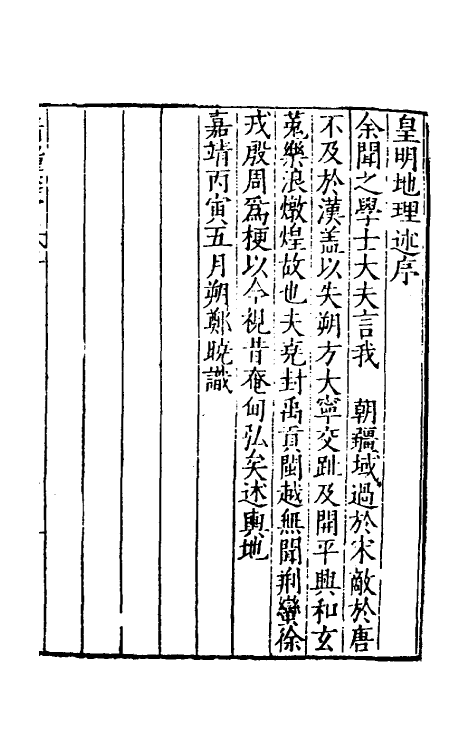 皇明地理述序
余聞之學士大夫言我　朝疆域過於宋敵於唐
不及於漢盖以失朔方大寧交趾及開平興和玄
菟樂浪燉煌故也夫堯封禹貢閩越無聞荆蠻徐
戎殷周爲梗以今視昔奄甸弘矣述輿地
嘉靖丙寅五月朔鄭曉識